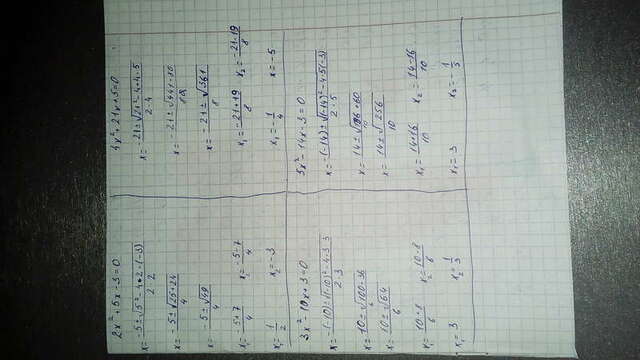 2x² + 5x - 3 = 0
x = (-5 ± √(5² - 4·2·(-3)))/(2·2)
x = (-5 ± √(25+24))/4
x = (-5 ± √49)/4
x₁ = (-5+7)/4 x₂ = (-5-7)/4
x₁ = 1/2 x₂ = -3
4x² + 21x + 5 = 0
x = (-21 ± √(21² - 4·4·5))/(2·4)
x = (-21 ± √(441-80))/8
x = (-21 ± √361)/8
x₁ = (-21+19)/8 x₂ = (-21-19)/8
x₁ = -1/4 x = -5
3x² - 10x + 3 = 0
x = (-(-10) ± √((-10)² - 4·3·3))/(2·3)
x = (10 ± √(100-36))/6
x = (10 ± √64)/6
x₁ = (10+8)/6 x₂ = (10-8)/6
x₁ = 3 x₂ = 1/3
5x² - 14x - 3 = 0
x = (-(-14) ± √((-14)² - 4·5·(-3)))/(2·5)
x = (14 ± √(196+60))/10
x = (14 ± √256)/10
x₁ = (14+16)/10 x₂ = (14-16)/10
x₁ = 3 x₂ = -1/5